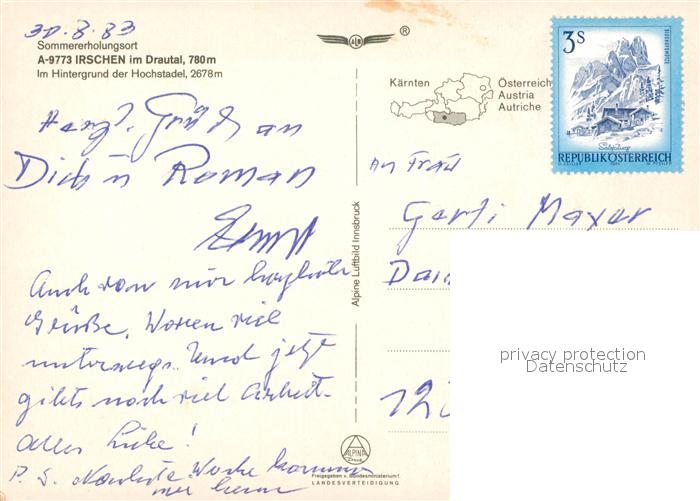 30.8.83
Sommererholungsort
A-9773 IRSCHEN im Drautal, 780 m
Im Hintergrund der Hochstadel, 2678 m
Herzl. Grüße an
Dich u Roman
Ernst
Auch von mir herzliche
Grüße. Waren viel
unterwegs. Und jetzt
gibts noch viel Arbeit.
Alles Liebe!
P.S. Nächste Woche kommen
wir heim
ALPINA
Druck
Freigegeben v. Bundesministerium f.
LANDESVERTEIDIGUNG
Alpine Luftbild Innsbruck
ALI
®
Kärnten
Österreich
Austria
Autriche
3 S
BISCHOFSMÜTZE
Salzburg
REPUBLIK ÖSTERREICH
An Frau
Gerti Mayer
privacy protection
Datenschutz